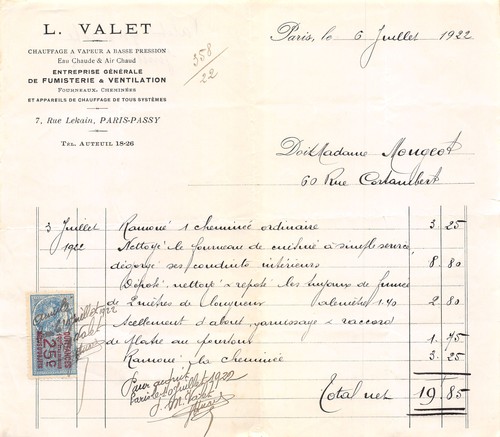 L. VALET
CHAUFFAGE A VAPEUR A BASSE PRESSION
Eau Chaude & Air Chaud
ENTREPRISE GÉNÉRALE
DE FUMISTERIE & VENTILATION
FOURNEAUX, CHEMINÉES
ET APPAREILS DE CHAUFFAGE DE TOUS SYSTÈMES
7, Rue Lekain, PARIS-PASSY
TEL. AUTEUIL 18-26
358
22
Paris, le 6 Juillet 1922
Doit Madame Mougeot
60 Rue Cortambert
3 Juillet Ramoné 1 cheminée ordinaire 3. 25
1922 Nettoyé le fourneau de cuisine à simple service,
dégorgé ses conduits intérieurs 8. 80
Déposé, nettoyé & reposé les tuyaux de fumée
de 2 mètres de longueur 1.40 2. 80
Scellement d'abord, garnissage & raccord
de plâtre au pourtour 1. 75
Ramoné la cheminée 3. 25
Total net 19. 85
Pour acquit
Paris le 20 Juillet 1922
Juillet 1922
Valet
25c
QUITTANCES